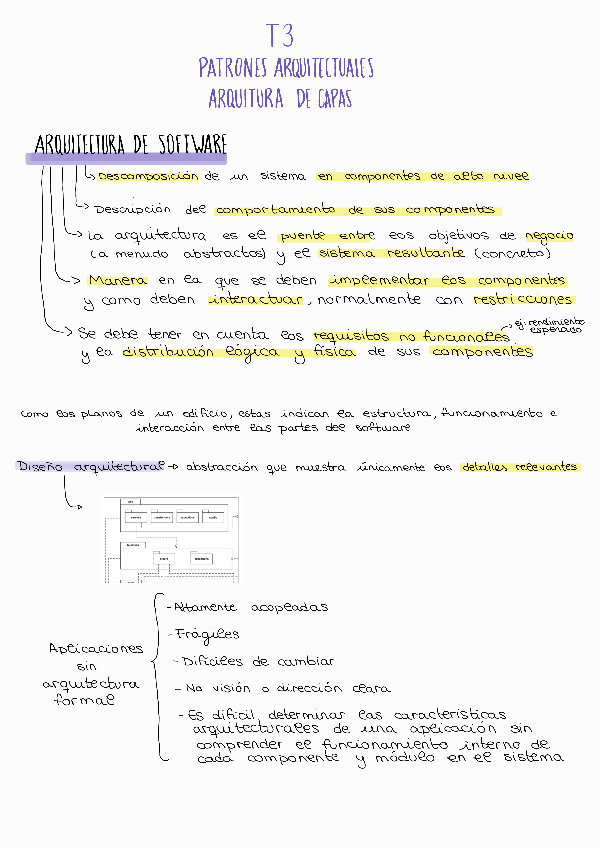 T3
PATRONES ARQUITECTUALES
ARQUITURA DE CAPAS
ARQUITECTURA DE SOFTWARE
Descomposición de un sistema en componentes de alto nivel
Descripción del comportamiento de sus componentes
La arquitectura es el puente entre los objetivos de negocio
(a menudo abstractos) y el sistema resultante (concreto)
Manera en la que se deben implementar los componentes
y como deben interactuar, normalmente con restricciones
ej: rendimiento
esperado
Se debe tener en cuenta los requisitos no funcionales
y la distribución lógica y física de sus componentes
Como los planos de un edificio, estas indican la estructura, funcionamiento e
interacción entre las partes del software
Diseño arquitectural → abstracción que muestra únicamente los detalles relevantes
Aplicaciones
sin
arquitectura
formal
- Altamente acopladas
- Frágiles
- Difíciles de cambiar
- No visión o dirección clara
- Es difícil determinar las características
arquitecturales de una aplicación sin
comprender el funcionamiento interno de
cada componente y módulo en el sistema